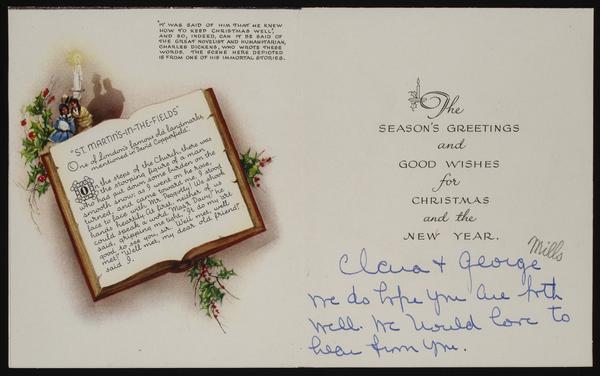 "IT WAS SAID OF HIM THAT HE KNEW
HOW TO KEEP CHRISTMAS WELL",
AND SO, INDEED, CAN IT BE SAID OF
THE GREAT NOVELIST AND HUMANITARIAN,
CHARLES DICKENS, WHO WROTE THESE
WORDS. THE SCENE HERE DEPICTED
IS FROM ONE OF HIS IMMORTAL STORIES.
"ST. MARTIN'S-IN-THE-FIELDS"
One of London's famous old landmarks,
mentioned in "David Copperfield".
On the steps of the Church, there was
the stooping figure of a man,
who had put down some burden on the
smooth snow; as I went on he rose,
turned, and came toward me. I stood
face to face with Mr. Peggotty! We shook
hands heartily. At first, neither of us
could speak a word. "Mas'r Davy!" he
said, gripping me tight, "it do my 'art
good to see you, sir. Well met, well
met!" "Well met, my dear old friend!"
said I.
The
SEASON'S GREETINGS
and
GOOD WISHES
for
CHRISTMAS
and the
NEW YEAR.
Mills
Clara + George
We do hope you are both
well. We would love to
hear from you.